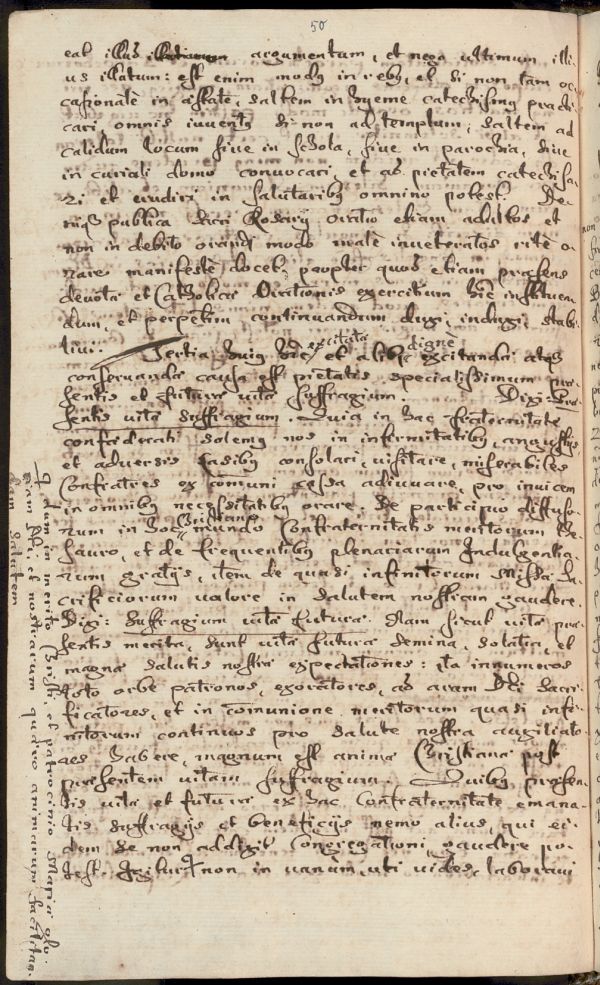 50
eat illius argumentum, et nego ultimum illi-
us illatum: est enim modus in rebus, et si non tam oc-
casionale in æstate, saltem in hyeme catechismus prædi-
cari omnis iuventus si non ad templum, saltem ad
calidum locum sive in schola, sive in parochia, sive
in curiali domo convocari, et ad pietatem catechisa-
ri et erudiri in salutaribus omnino potest. De-
niq publica Sacri Rosarij oratio etiam adultos et
non in debito orandi modo male inveteratos rite o-
rare manifeste docet, propter quos etiam præsens
devotæ et Catholicæ Orationis exercitium hic instituen-
dum, et perpetim continuandum duxi, induxi, stabi-
livi.
Tertia huius hic excitatæ et alibi digne excitandæ atq
conservandæ causa est pietatis specialissimum præ-
sentis et futuræ vitæ suffragium. Dixi: Præ-
sentis vitæ Suffragium. Quia in hac fraternitate
confæderati solemus nos in infirmitatibus, angustijs,
et adversis casibus consolari, visitare, miserabiles
Confratres ex comuni cassa adiuvare, pro invicem
in omnibus necessitatibus orare, de participio diffuso-
rum in hoc Christiano mundo Confraternitatis meritorum the-
sauro, et de frequentibus plenariarum Indulgentia-
rum gratijs, item de quasi infinitorum Missæ Sa-
crificiorum valore in salutem nostram gaudere.
Dixi: Suffragium vitæ futuræ. Nam sicut vitæ præ-
sentis merita, sunt vitæ futuræ semina, solatia, et
magnæ salutis nostræ expectationes: ita innumeros
toto orbe patronos, exoratores, ad aram Dei sacri-
ficatores, et in comunione meritorum quasi infi-
nitorum continuos pro salute nostra auxiliato-
res habere, magnum est animæ Christianæ post
præsentem vitam suffragium. Quibus præsen-
tis vitæ et futuræ ex hac Confraternitate emana-
tis suffragijs et beneficijs nemo alius, qui ei-
dem se non addixit Congregationi, gaudere po-
test. Igitur non in vanum, uti vides, laboravi
item in merito Christi, et patrocinio Mariæ glo-
riam Dei, et nostrarum quæro animarum facilitas
salutem